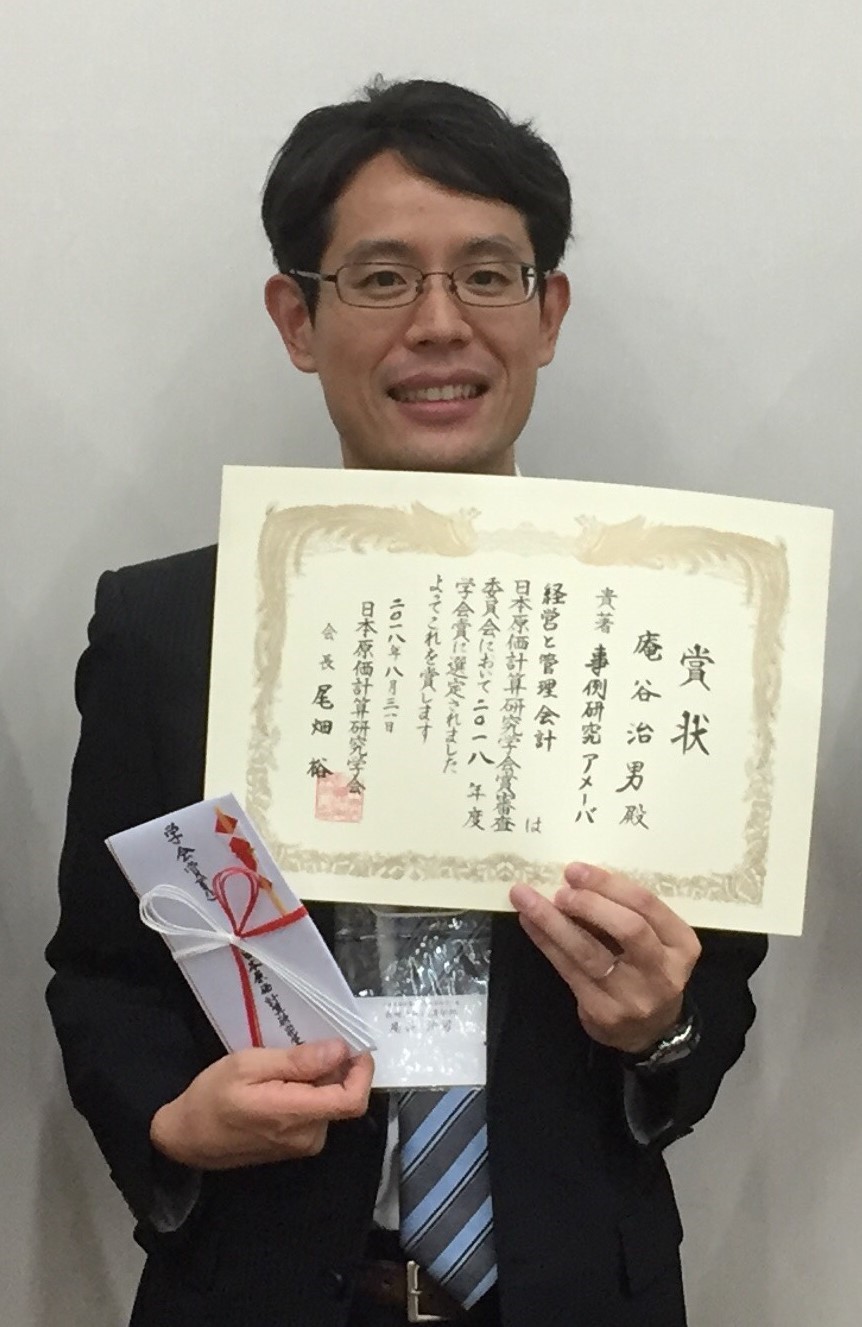 賞状
庵谷治男殿
貴著 事例研究 アメーバ
経営と管理会計 は
日本原価計算研究学会賞審査
委員会において二〇一八年度
学会賞に選定されました
よってこれを賞します
二〇一八年八月三一日
日本原価計算研究学会
会長 尾畑 裕
学会賞
日本原価計算研究学会